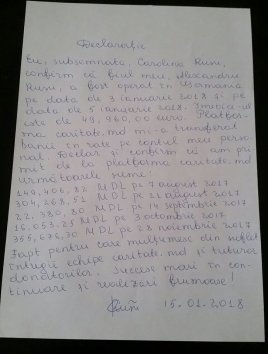 Declarație
Eu, subsemnata, Carolina Rusu,
confirm că fiul meu, Alexandru
Rusu, a fost operat în Germania
pe data de 3 ianuarie 2018 și pe
data de 5 ianuarie 2018. Invoice-ul
este de 49,960,00 euro. Platfor-
ma caritate.md mi-a transferat
banii în rate pe contul meu perso-
nal. Totodar și confirm că am pri-
mit de la platforma caritate.md
următoarele sume:
149,406,82 MDL pe 7 august 2017
304,268,51 MDL pe 21 august 2017
22,380,80 MDL pe 14 septembrie 2017
16,053,25 MDL pe 3 octombrie 2017
355,676,30 MDL pe 28 noiembrie 2017
Fapt pentru care mulțumesc din suflet
întregii echipe caritate.md și tuturor
donatorilor. Succese mari în con-
tinuare și realizări frumoase!
15.01.2018